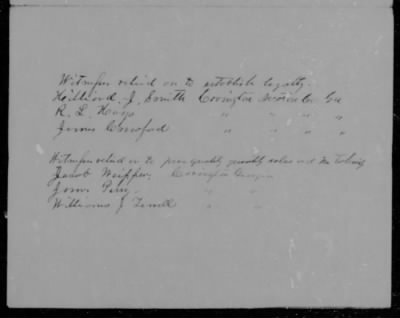 Witnesses relied on to establish loyalty.
Hilliard J. Smith Covington Newton Co. Ga
R. L. Hays " " " "
James Crawford " " " "
Witnesses relied on to prove quality quantity value and the taking
Jacob Covington Georgia
James Perry " "
William J Terrell " "